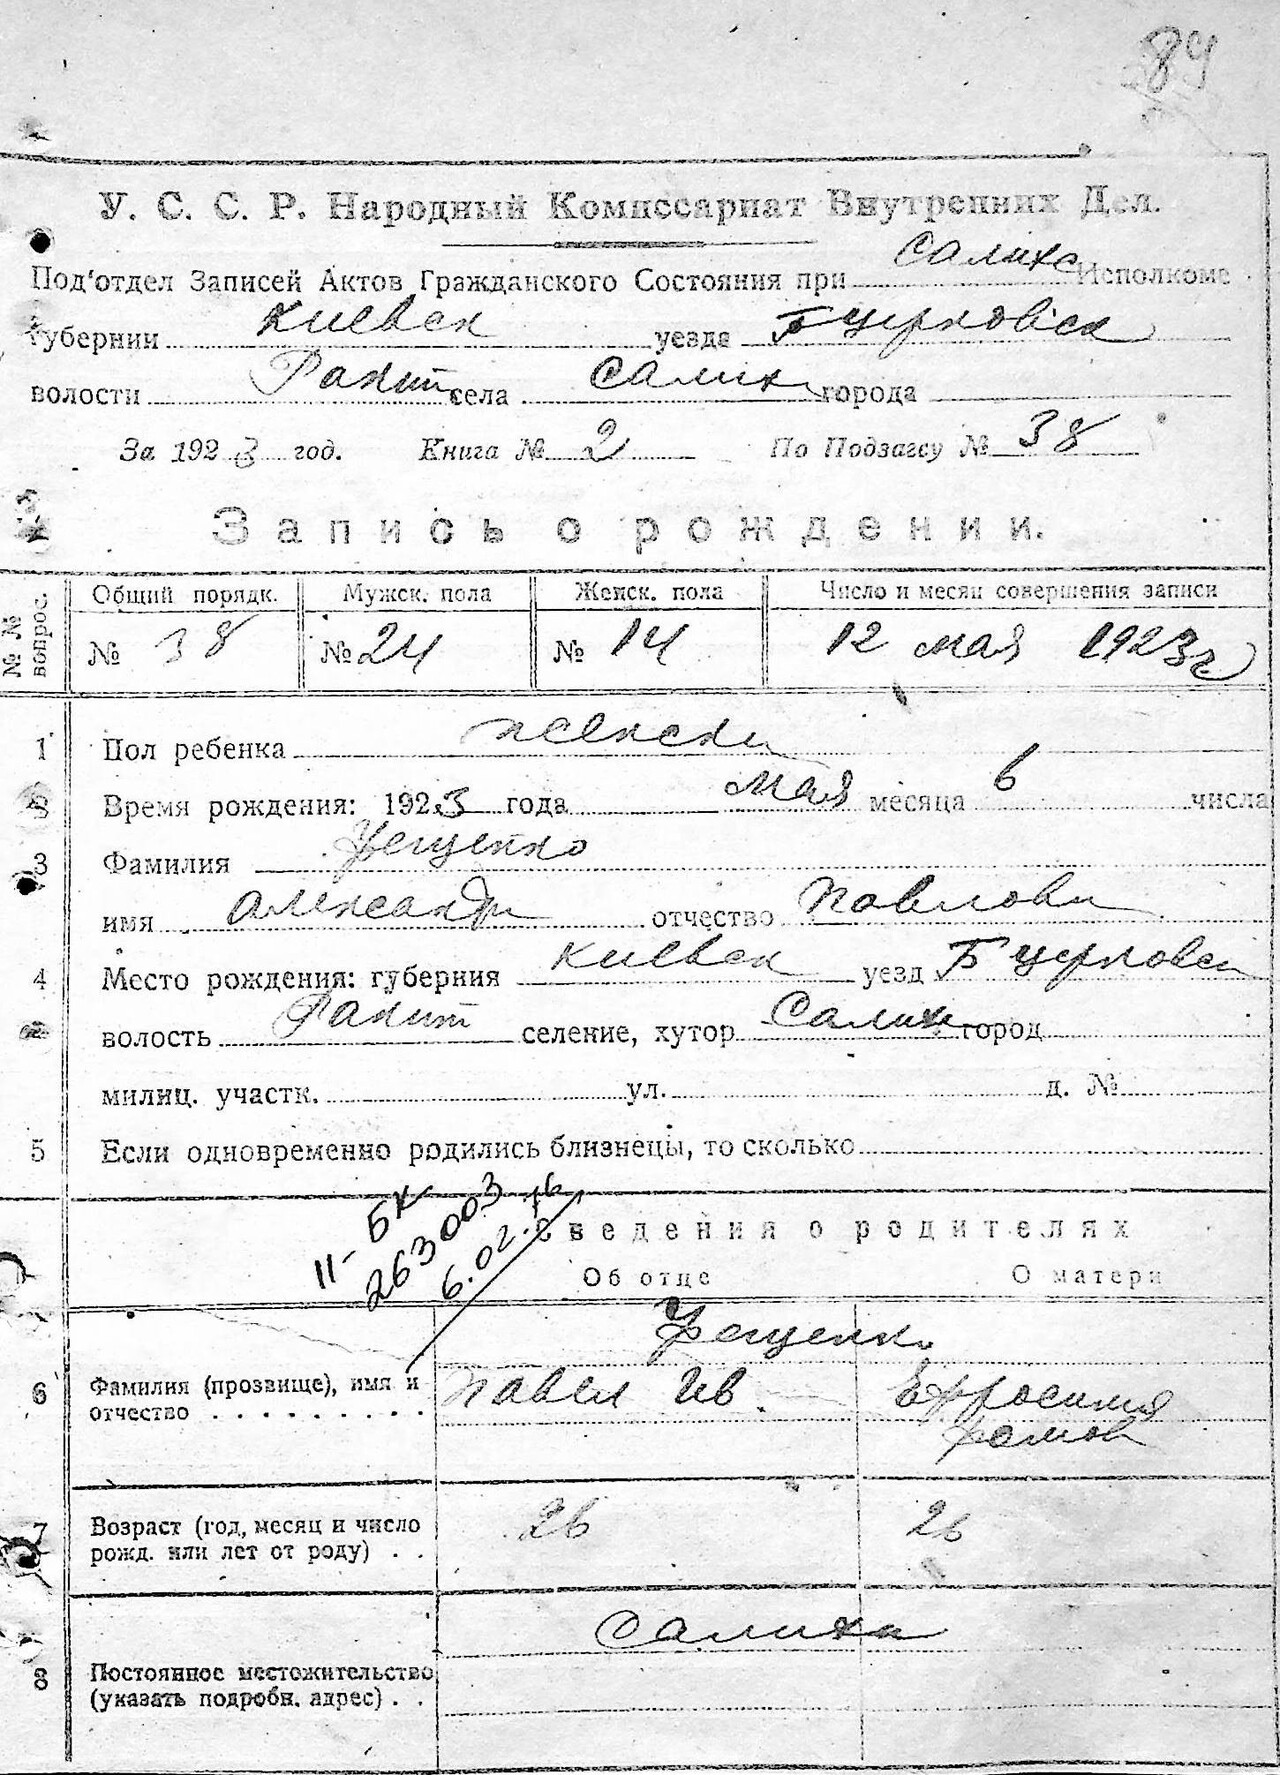 89
У. С. С. Р. Народный Комиссариат Внутренних Дел.
Под'отдел Записей Актов Гражданского Состояния при Салихс Исполкоме
губернии Киевск уезда Бцерковск
волости Ракит села Салих города
За 1923 год. Книга № 2 По Подзагсу № 38
Запись о рождении.
№ № вопрос. Общий порядк. Мужск. пола Женск. пола Число и месяц совершения записи
№ 38 № 24 № 14 12 мая 1923 г
1 Пол ребенка женски
2 Время рождения: 1923 года мая месяца 6 числа
3 Фамилия
имя Александр отчество Павлови
4 Место рождения: губерния Киевск уезд Бцерковск
волость Ракит селение, хутор Салих город
милиц. участк. ул. д. №
5 Если одновременно родились близнецы, то сколько
11-БК
263003
6.02.76
Сведения о родителях
Об отце О матери
6 Фамилия (прозвище), имя и отчество Павел Ив. Ефросиния
7 Возраст (год, месяц и число рожд. или лет от роду) 26 26
Салиха
8 Постоянное местожительство (указать подробн. адрес)